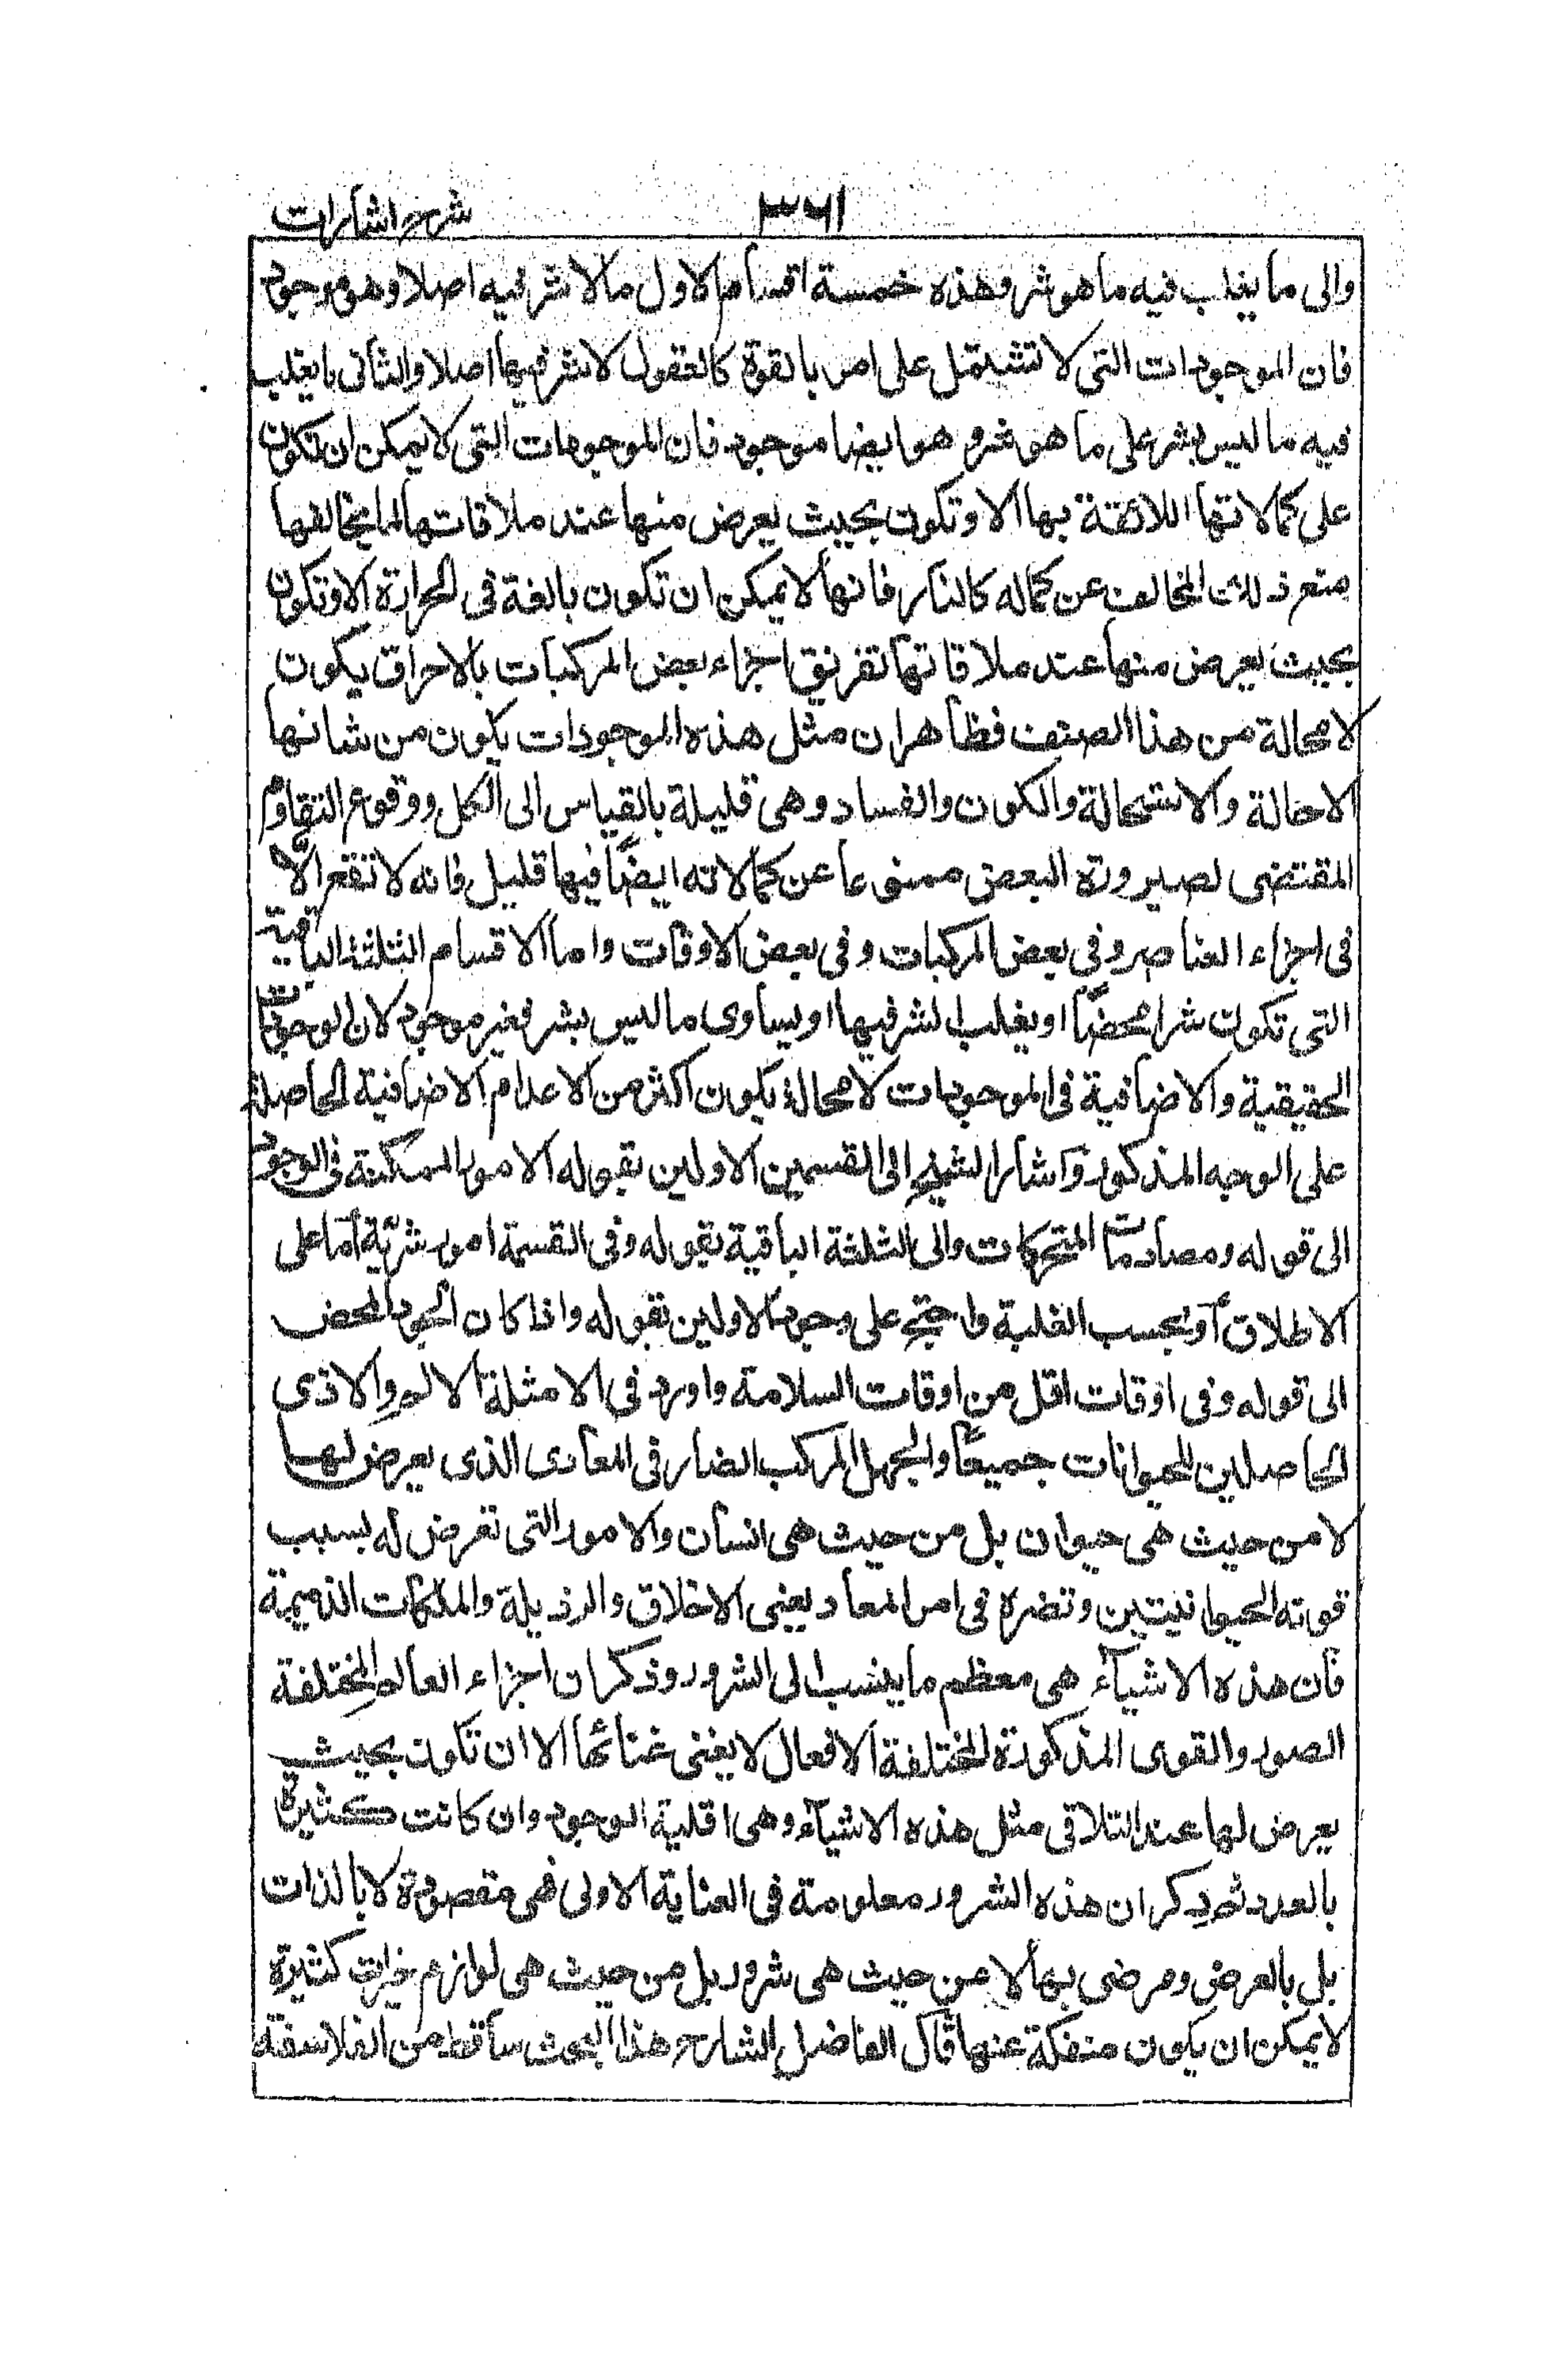 شرح اشارات
٣٦١
والى ما يغلب فيه ما هو شر وهذه خمسة اقسام الاول ما لا شر فيه اصلا وهو موجود
فان الموجودات التى لا تشتمل على امر بالقوة كالعقول لا شر فيها اصلا والثانى ما يغلب
فيه ما ليس بشر على ما هو شر وهو ايضا موجود فان الموجودات التى لا يمكن ان تكون
على كمالاتها اللائقة بها الا وتكون بحيث يعرض منها عند ملاقاتها لما يخالفها
منعه ذلك المخالف عن كماله كالنار فانها لا يمكن ان تكون بالغة فى الحرارة الا وتكون
بحيث يعرض منها عند ملاقاتها تفريق اجزاء بعض المركبات بالاحراق يكون
لا محالة من هذا الصنف فظاهر ان مثل هذه الموجودات يكون من شانها
الاحالة والاستحالة والكون والفساد وهى قليلة بالقياس الى الكل ووقوع التقاوم
المقتضى لصيرورة البعض ممنوعا عن كمالاته ايضًا فيها قليل فانه لا تقع الّا
فى اجزاء العناصر وفى بعض المركبات وفى بعض الاوقات واما الاقسام الثلثة الباقية
التى تكون شرا محضًا او يغلب الشر فيها او يساوى ما ليس بشر فغير موجود لان الموجودات
الحقيقية والاضافية فى الموجودات لا محالة يكون اكثر من الاعدام الاضافية الحاصلة
على الوجه المذكور واشار الشيخ الى القسمين الاولين بقوله الامور الممكنة فى الوجود
الى قوله ومصادمات المتحركات والى الثلثة الباقية بقوله وفى القسمة امور شرّية امّا على
الاطلاق او بحسب الغلبة واحتج على وجود الاولين بقوله واذا كان الجود المحض
الى قوله وفى اوقات اقل من اوقات السلامة واورد فى الامثلة الالم والاذى
الحاصلين للحيوانات جميعًا والجهل المركب الضار فى المعاد الذى يعرض لها
لا من حيث هى حيوان بل من حيث هى انسان والامور التى تعرض له بسبب
قوته الحيوانيتين وتضره فى امر المعاد يعنى الاخلاق والرذيلة والملكات الذميمة
فان هذه الاشياء هى معظم ما ينسب الى الشرور وذكر ان اجزاء العالم المختلفة
الصور والقوى المذكورة المختلفة الافعال لا يغنى غنائها الا ان تكون بحيث
يعرض لها عند التلاقى مثل هذه الاشياء وهى اقلية الوجود وان كانت كثيرة
بالعدد ثم ذكر ان هذه الشرور معلومة فى العناية الاولى فهى مقصودة لا بالذات
بل بالعرض ومرضى بها لا من حيث هى شرور بل من حيث هى لوازم خيرات كثيرة
لا يمكن ان يكون منفكة عنها قال الفاضل الشارح هذا البحث ساقط من الفلاسفة